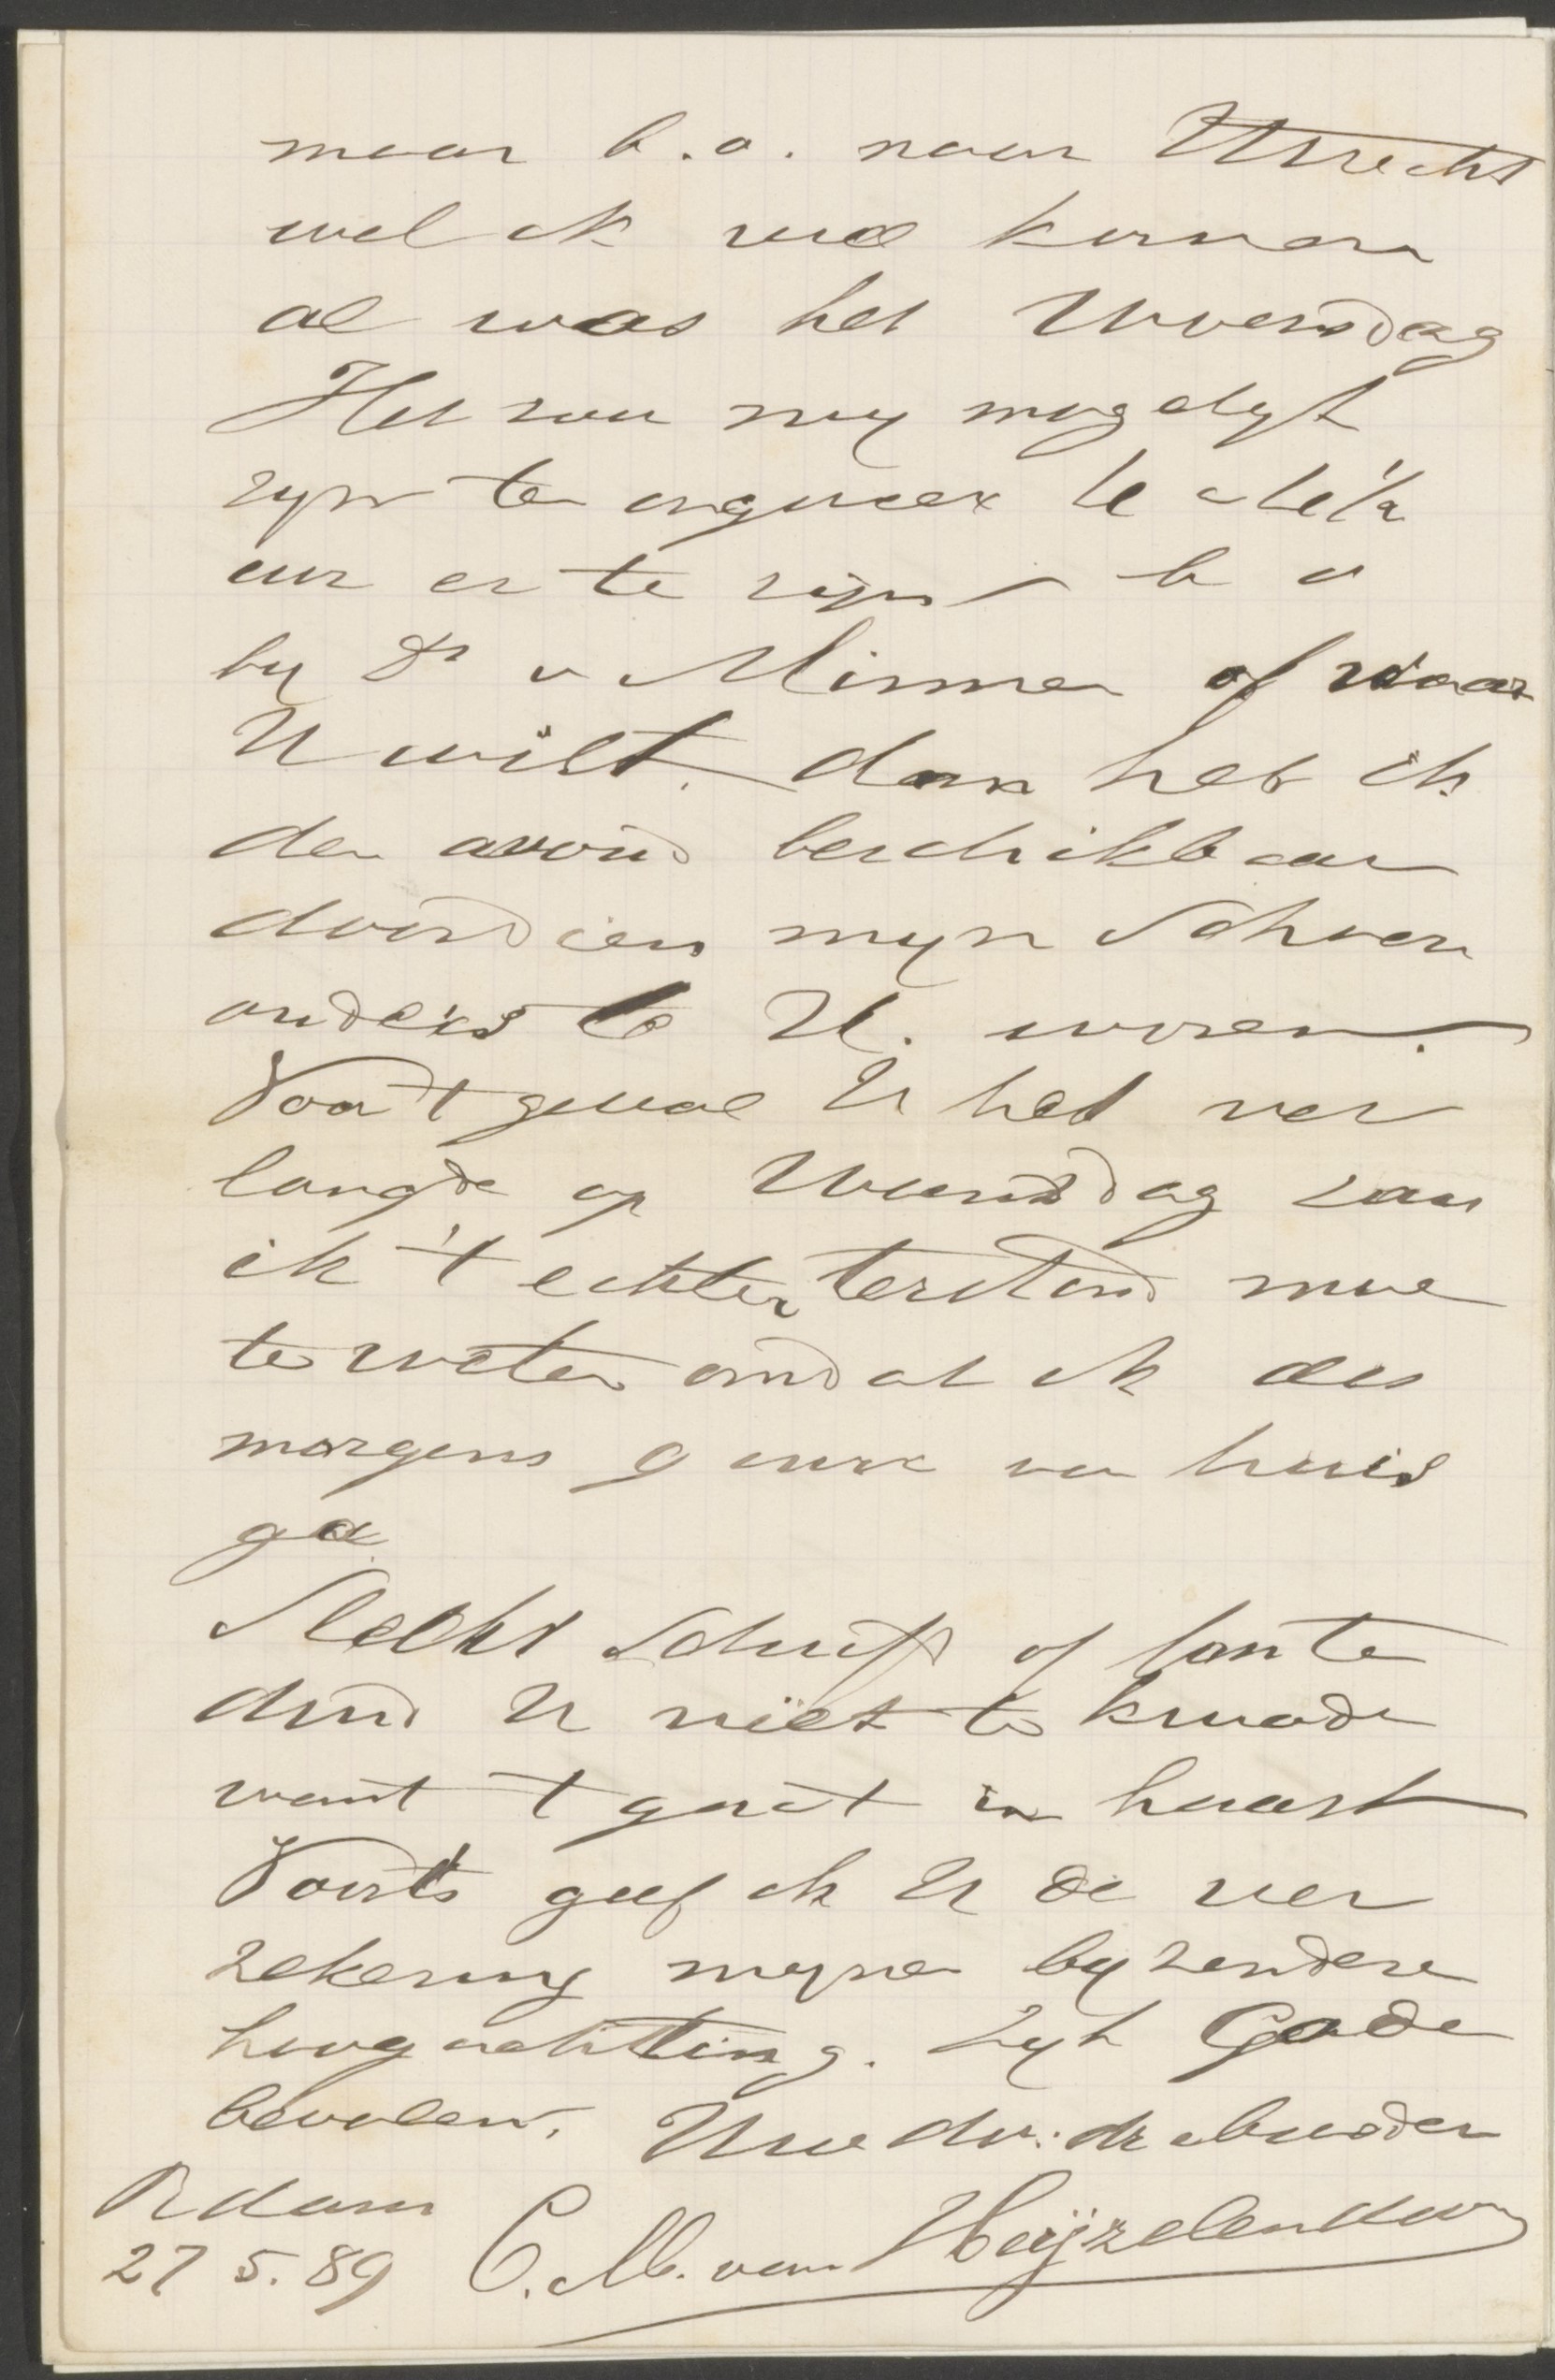 maar b.v. naar Utrecht
wel ik wel komen
al was het Woensdag
Het zou my mogelyk
zyn te ongeveer
uur er te zyn b v
by Dr v Minnen of waar
U wilt. dan heb ik
den avond beschikbaar
doordien myn Schoon
ouders te U. wonen.
Voor 't geval U het ver
langde op Woensdag zou
ik 't echter terstond moe
ten weten omdat ik des
morgens 9 ure van huis
ga.
Slecht Schrift of fonte
duid U niet te kwade
want t gaat in haast
Voorts geef ik U de ver
zekering myner byzondere
hoogachting. Zyt Gode
bevolen. Uwe dw: dr abroeder
Rdam
27 5. 89 C. M. van Heijzelendoorn